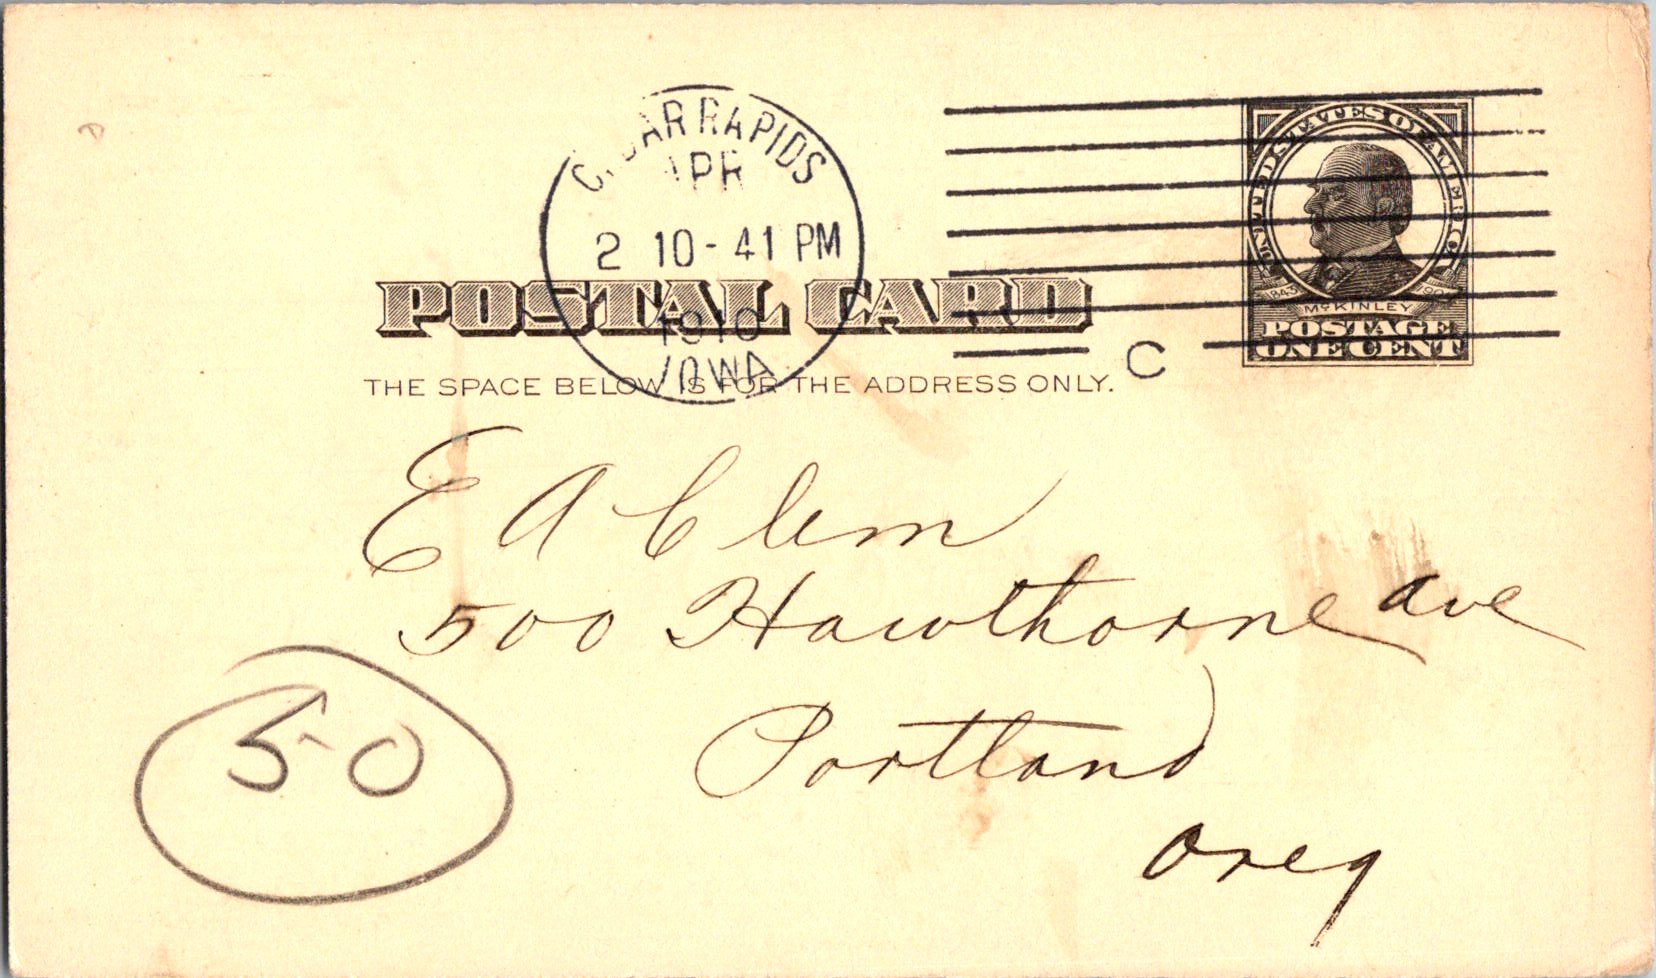 CEDAR RAPIDS
APR
2 10-41 PM
1910
IOWA
C
UNITED STATES OF AMERICA
1843 1901
McKINLEY
POSTAGE
ONE CENT
POSTAL CARD
THE SPACE BELOW IS FOR THE ADDRESS ONLY.
E A Clem
500 Hawthorne ave
Portland
Oreg
50